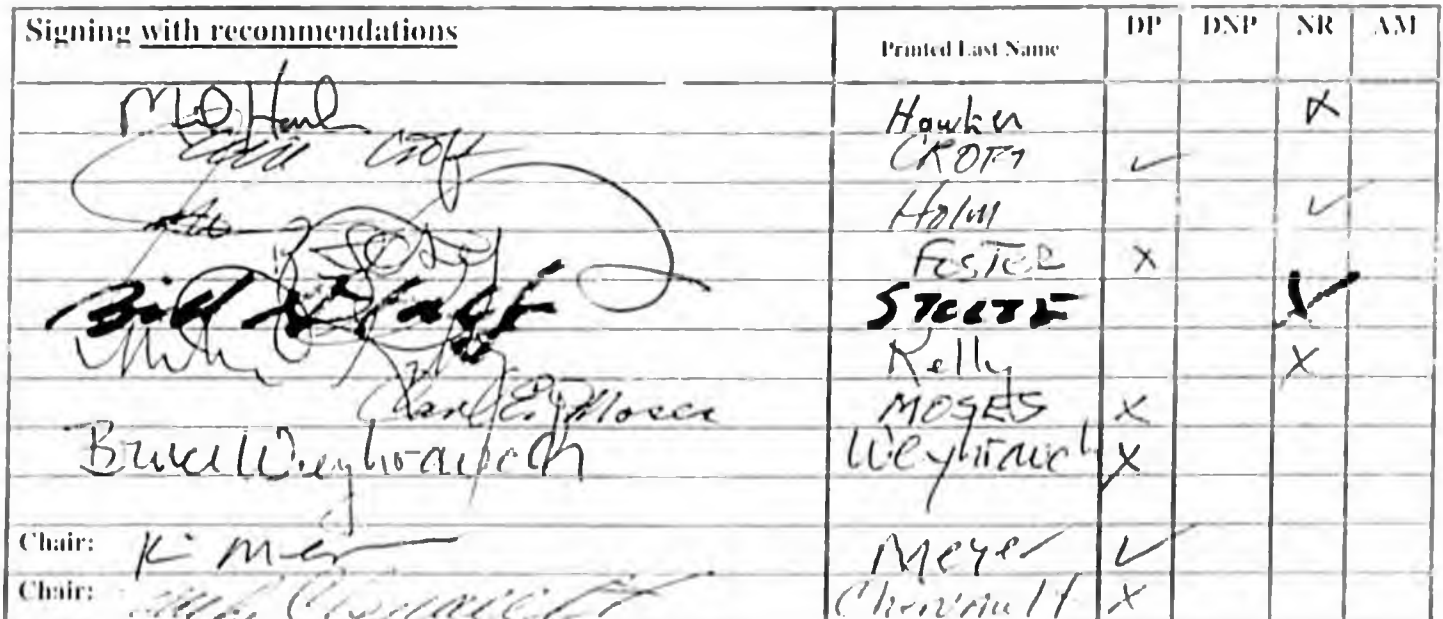 Signing with recommendations Printed Last Name DP DNP NR AM
Hawker X
Croft CROFT ✓
Holm ✓
FOSTER X
Bill STOLTZE ✓
Mike Kelly X
Carl E. Moses MOSES X
Bruce Weyhrauch Weyhrauch X
Chair: K Meyer ✓
Chair: Chenault X